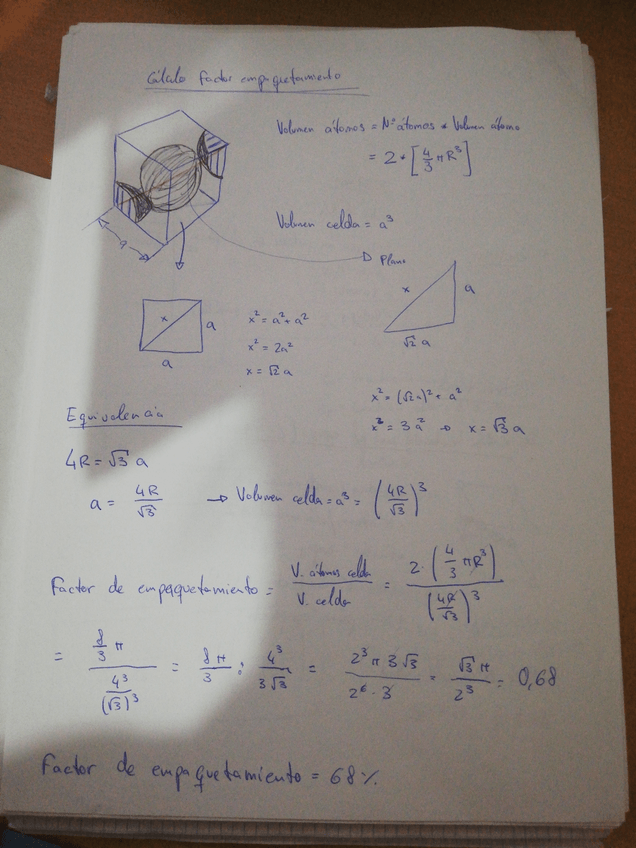 Cálculo factor empaquetamiento
Volumen átomos = Nº átomos * Volumen átomo
= 2 * [4/3 π R³]
Volumen celda = a³
a
Plano
x
a
a
x² = a² + a²
x² = 2a²
x = √2 a
x
a
√2 a
x² = (√2 a)² + a²
x² = 3a² → x = √3 a
Equivalencia
4R = √3 a
a = 4R/√3 → Volumen celda = a³ = (4R/√3)³
Factor de empaquetamiento = V. átomos celda / V. celda = 2·(4/3 πR³) / (4R/√3)³
= (8/3 π) / (4³/(√3)³) = 8π/3 : 4³/3√3 = 2³ π 3√3 / 2⁶ · 3 = √3 π / 2³ = 0,68
Factor de empaquetamiento = 68 %.